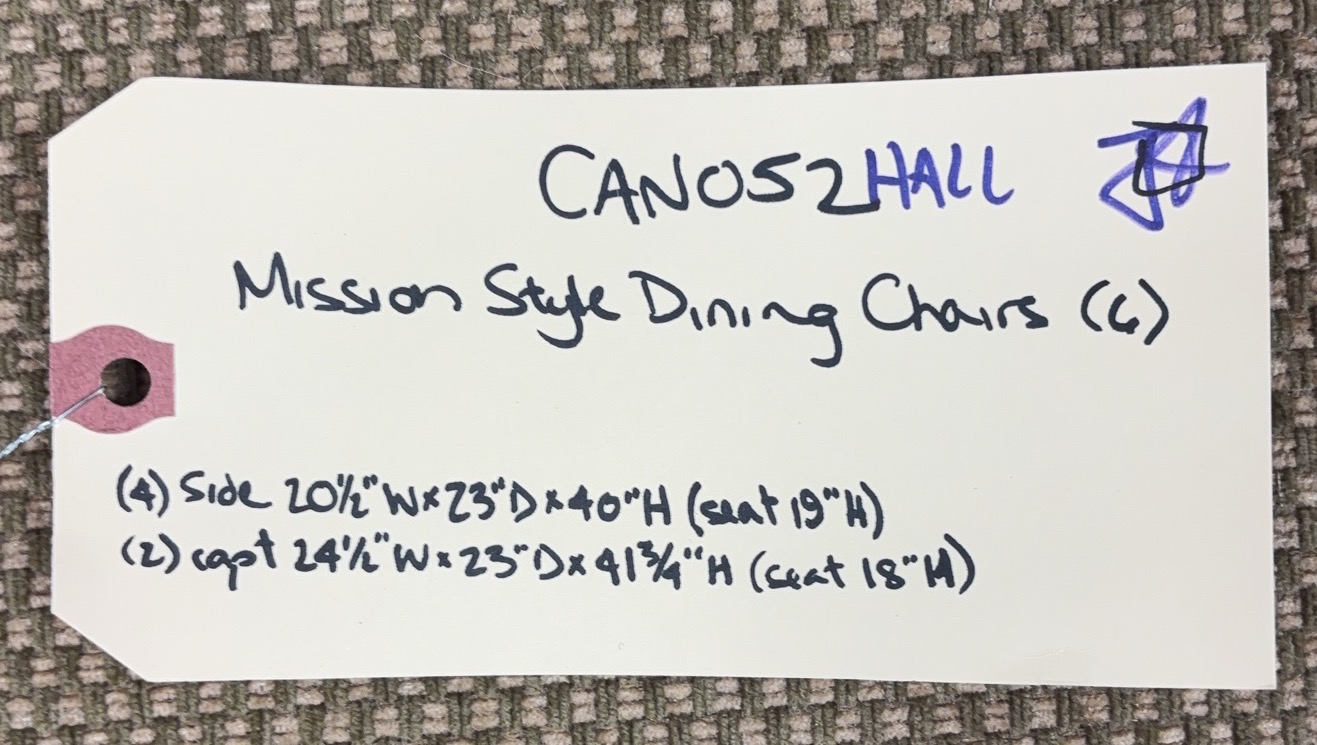 CAN052HALL
Mission Style Dining Chairs (6)
(4) Side 20½" W x 23" D x 40" H (seat 19" H)
(2) capt 24½" W x 23" D x 41¾" H (seat 18" H)